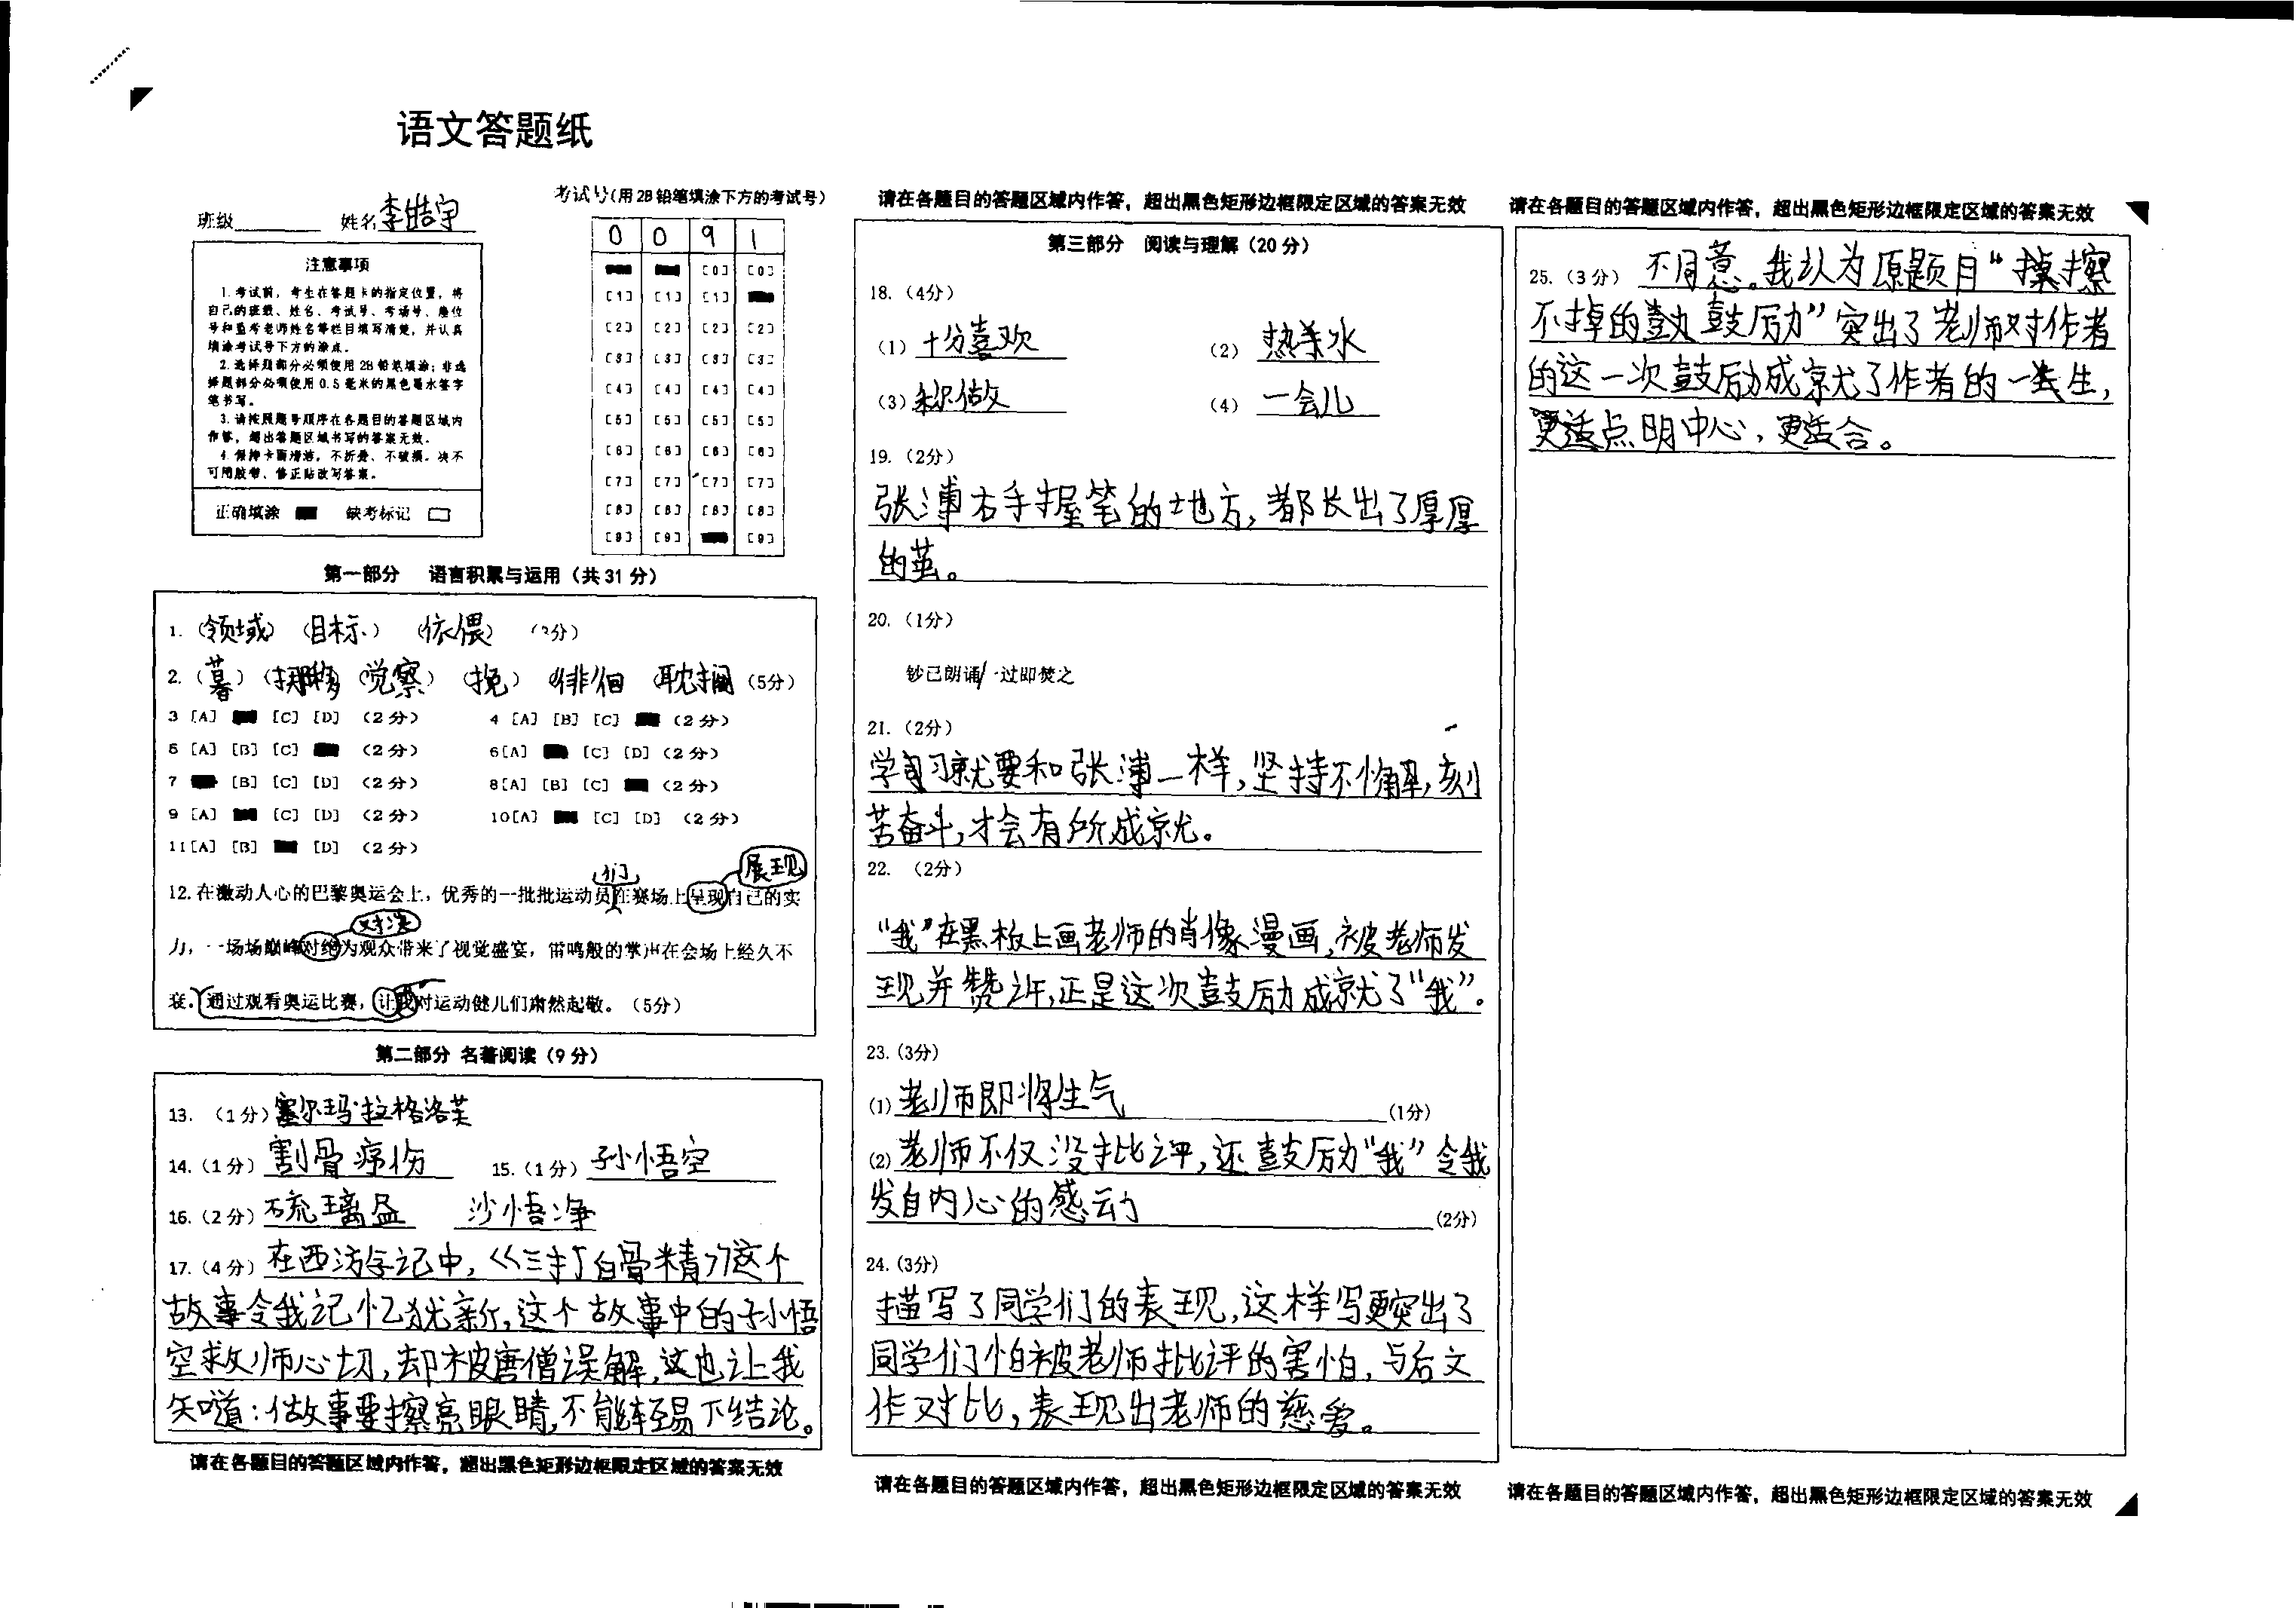 语文答题纸
班级 姓名 李皓宇
考试号(用2B铅笔填涂下方的考试号)
0 0 9 1
[0] [0]
[1] [1] [1]
[2] [2] [2] [2]
[3] [3] [3] [3]
[4] [4] [4] [4]
[5] [5] [5] [5]
[6] [6] [6] [6]
[7] [7] [7] [7]
[8] [8] [8] [8]
[9] [9] [9]
注意事项
1.考试前,考生在答题卡的指定位置,将
自己的班级、姓名、考试号、考场号、座位
号和监考老师姓名等栏目填写清楚,并认真
填涂考试号下方的涂点。
2.选择题部分必须使用2B铅笔填涂;非选
择题部分必须使用0.5毫米的黑色墨水签字
笔书写。
3.请按照题号顺序在各题目的答题区域内
作答,超出答题区域书写的答案无效。
4.保持卡面清洁,不折叠、不破损。决不
可用胶带、修正贴改写答案。
正确填涂 缺考标记
第一部分 语言积累与运用(共31分)
1.(领域)(目标)(依偎)
2.(暮)(挪移)(觉察)(挽)(徘徊)(耽搁)(5分)
3 [A] [C] [D] (2分) 4 [A] [B] [C] (2分)
5 [A] [B] [C] (2分) 6[A] [C] [D] (2分)
7 [B] [C] [D] (2分) 8[A] [B] [C] (2分)
9 [A] [C] [D] (2分) 10[A] [C] [D] (2分)
11[A] [B] [D] (2分)
们 展现
12.在激动人心的巴黎奥运会上,优秀的一批批运动员在赛场上呈现自己的实
对决
力,一场场巅峰对绝为观众带来了视觉盛宴,雷鸣般的掌声在会场上经久不
衰。通过观看奥运比赛,让我对运动健儿们肃然起敬。(5分)
第二部分 名著阅读(9分)
13.(1分)塞尔玛·拉格洛芙
14.(1分)割骨疗伤 15.(1分)孙悟空
16.(2分)琉璃盏 沙悟净
17.(4分)在西游记中,《三打白骨精》这个
故事令我记忆犹新,这个故事中的孙悟
空救师心切,却被唐僧误解,这也让我
知道:做事要擦亮眼睛,不能轻易下结论。
请在各题目的答题区域内作答,超出黑色矩形边框限定区域的答案无效
请在各题目的答题区域内作答,超出黑色矩形边框限定区域的答案无效
第三部分 阅读与理解(20分)
18.(4分)
(1)十分喜欢 (2)热汤水
(3)称做 (4)一会儿
19.(2分)
张溥右手握笔的地方,都长出了厚厚
的茧。
20.(1分)
钞已朗诵/一过即焚之
21.(2分)
学习就要和张溥一样,坚持不懈,刻
苦奋斗,才会有所成就。
22.(2分)
“我”在黑板上画老师的肖像漫画,被老师发
现并赞许,正是这次鼓励成就了“我”。
23.(3分)
(1)老师即将生气 (1分)
(2)老师不仅没批评,还鼓励“我”令我
发自内心的感动 (2分)
24.(3分)
描写了同学们的表现,这样写更突出了
同学们怕被老师批评的害怕,与后文
作对比,表现出老师的慈爱。
请在各题目的答题区域内作答,超出黑色矩形边框限定区域的答案无效
请在各题目的答题区域内作答,超出黑色矩形边框限定区域的答案无效
25.(3分)不同意。我认为原题目“擦
不掉的鼓励”突出了老师对作者
的这一次鼓励成就了作者的一生,
更适点明中心,更适合。
请在各题目的答题区域内作答,超出黑色矩形边框限定区域的答案无效